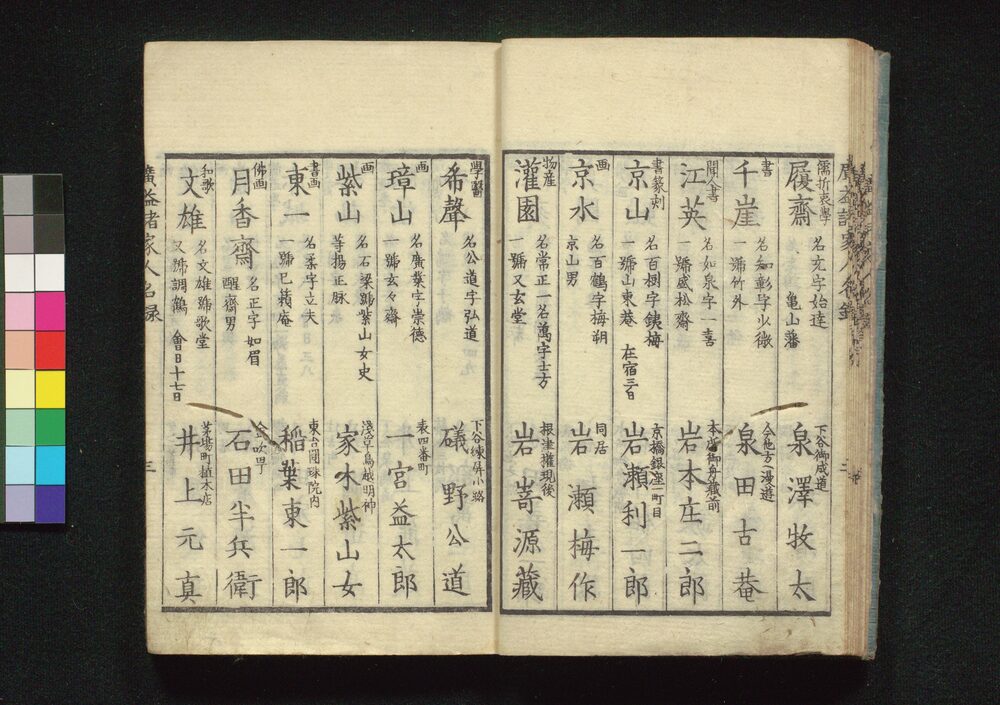 儒折衷學
履齋
名充字始達
亀山藩
下谷御成道
泉澤牧太
書
千崖
名知彰字少微
一号竹外
泉田古菴
江英
名如泉字一喜
一號盛松齋
本所御舟藏前
岩本庄二郎
書篆刻
京山
名百樹字鉄梅
一號山東菴
在宿三日
京橋銀座一町目
岩瀬利一郎
画
京水
名百鶴字梅朔
京山男
同居
岩瀬梅作
物産
灌園
名常正一名萬字士方
一號又玄堂
根津権現後
岩嵜源藏
學醫
希聲
名公道字弘道
下谷練屏小路
磯野公道
画
璋山
名廣業字崇德
一號玄々齋
表四番町
一宮益太郎
画
紫山
名石梁號紫山女史
等揚正脉
淺草鳥越明神
家木紫山女
書画
東一
名柔字立夫
一號已蘓庵
東台圓珠院内
稲葉東一郎
佛画
月香齋
名正字如眉
醒齋男
石田半兵衛
和歌
文雄
名文雄號歌堂
又號調鶴
會日十七日
茅場町植木店
井上元真
廣益諸家人名録
三